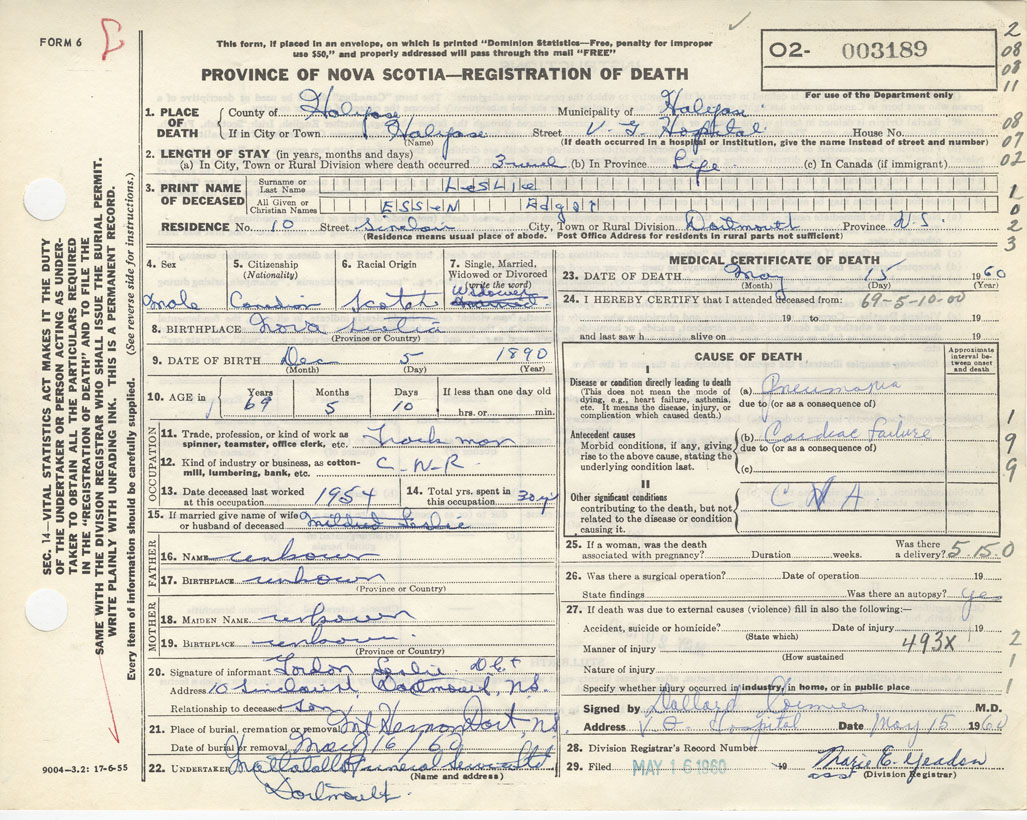 FORM 6
This form, if placed in an envelope, on which is printed "Dominion Statistics—Free, penalty for improper
use $50," and properly addressed will pass through the mail "FREE"
O2- 003189
For use of the Department only
PROVINCE OF NOVA SCOTIA—REGISTRATION OF DEATH
2
08
08
11
08
07
02
1
0
2
3
1
9
9
2
1
1
SEC. 14—VITAL STATISTICS ACT MAKES IT THE DUTY
OF THE UNDERTAKER OR PERSON ACTING AS UNDER-
TAKER TO OBTAIN ALL THE PARTICULARS REQUIRED
IN THE "REGISTRATION OF DEATH" AND TO FILE THE
SAME WITH THE DIVISION REGISTRAR WHO SHALL ISSUE THE BURIAL PERMIT.
WRITE PLAINLY WITH UNFADING INK. THIS IS A PERMANENT RECORD.
Every item of information should be carefully supplied. (See reverse side for instructions.)
1. PLACE OF DEATH
County of Halifax Municipality of Halifax
If in City or Town Halifax Street V. G. Hospital House No.
(Name) (If death occurred in a hospital or institution, give the name instead of street and number)
2. LENGTH OF STAY (in years, months and days)
(a) In City, Town or Rural Division where death occurred 3 (b) In Province Life (c) In Canada (if immigrant)
3. PRINT NAME OF DECEASED
Surname or Last Name LesLie
All Given or Christian Names ESSeN Edgar
RESIDENCE No. 10 Street Sinclair City, Town or Rural Division Dartmouth Province N.S
(Residence means usual place of abode. Post Office Address for residents in rural parts not sufficient)
4. Sex
Male
5. Citizenship
(Nationality)
Canadian
6. Racial Origin
Scotch
7. Single, Married,
Widowed or Divorced
(write the word)
Widower
Married
8. BIRTHPLACE Nova Scotia
(Province or Country)
9. DATE OF BIRTH Dec 5 1890
(Month) (Day) (Year)
10. AGE in Years 69 Months 5 Days 10
If less than one day old
hrs. or min.
OCCUPATION
11. Trade, profession, or kind of work as
spinner, teamster, office clerk, etc. Track man
12. Kind of industry or business, as cotton-
mill, lumbering, bank, etc. C-N-R
13. Date deceased last worked
at this occupation 1954
14. Total yrs. spent in
this occupation 30 yr
15. If married give name of wife
or husband of deceased Mildred Leslie
FATHER
16. NAME unknown
17. BIRTHPLACE unknown
(Province or Country)
MOTHER
18. MAIDEN NAME unknown
19. BIRTHPLACE unknown
(Province or Country)
20. Signature of informant Gordon Leslie
Address 10 Sinclair St, Dartmouth, N.S.
Relationship to deceased son
21. Place of burial, cremation or removal Mt Hermon Dart, N.S
Date of burial or removal May 16/60
22. Undertaker Mattatall Funeral Service Ltd
(Name and address)
Dartmouth.
9004-3.2: 17-6-55
MEDICAL CERTIFICATE OF DEATH
23. DATE OF DEATH May 15 1960
(Month) (Day) (Year)
24. I HEREBY CERTIFY that I attended deceased from: 69-5-10-00
19 to 19
and last saw h alive on 19
CAUSE OF DEATH
Approximate
interval be-
tween onset
and death
I
Disease or condition directly leading to death
(This does not mean the mode of
dying, e.g., heart failure, asthenia,
etc. It means the disease, injury, or
complication which caused death.)
(a) Pneumonia
due to (or as a consequence of)
Antecedent causes
Morbid conditions, if any, giving
rise to the above cause, stating the
underlying condition last.
(b) Cardiac Failure
due to (or as a consequence of)
(c)
II
Other significant conditions
contributing to the death, but not
related to the disease or condition
causing it.
C V A
25. If a woman, was the death
associated with pregnancy? Duration weeks.
Was there
a delivery? 5-15-0
26. Was there a surgical operation? Date of operation 19
State findings Was there an autopsy? yes
27. If death was due to external causes (violence) fill in also the following:—
Accident, suicide or homicide? Date of injury 19
(State which)
Manner of injury 493X
(How sustained)
Nature of injury
Specify whether injury occurred in industry, in home, or in public place
Signed by Dollard Cormier M.D.
Address V. G. Hospital Date May 15 1960
28. Division Registrar's Record Number
29. Filed MAY 16 1960 19 Marie E. Yeadon
(Division Registrar)